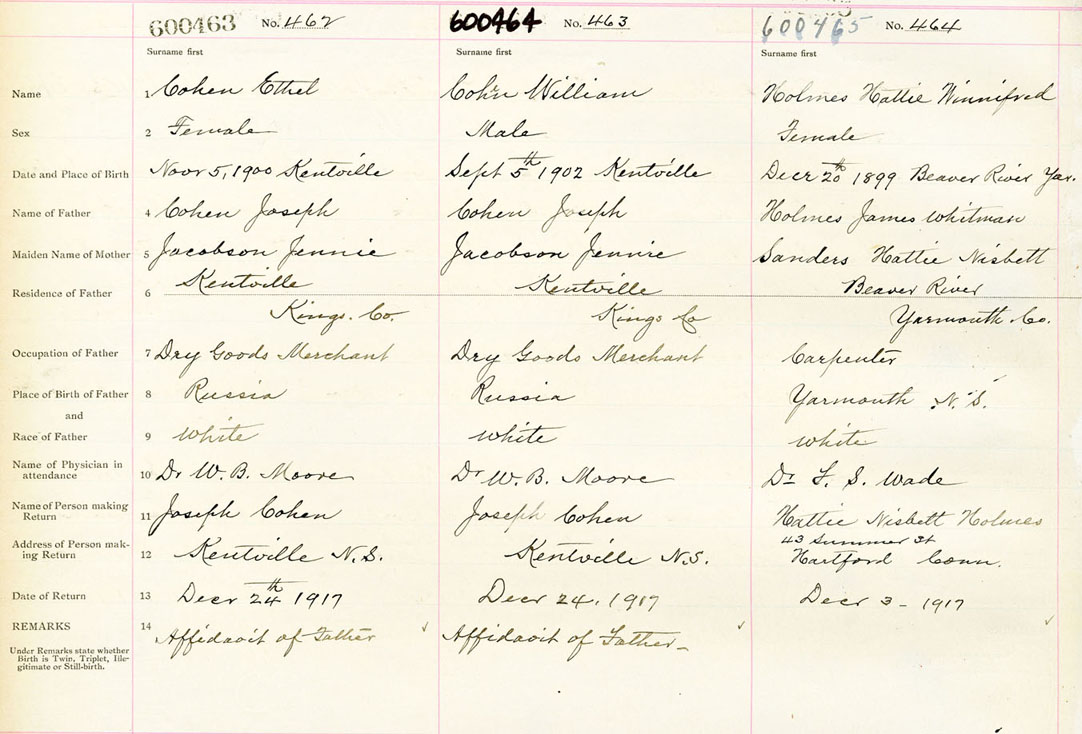 600463 No. 462
Surname first
Name 1 Cohen Ethel
Sex 2 Female
Date and Place of Birth 3 Novr 5, 1900 Kentville
Name of Father 4 Cohen Joseph
Maiden Name of Mother 5 Jacobson Jennie
Residence of Father 6 Kentville
Kings. Co.
Occupation of Father 7 Dry Goods Merchant
Place of Birth of Father 8 Russia
and
Race of Father 9 White
Name of Physician in
attendance 10 Dr W. B. Moore
Name of Person making
Return 11 Joseph Cohen
Address of Person mak-
ing Return 12 Kentville N.S.
Date of Return 13 Decr 24th 1917
REMARKS 14 Affidavit of Father
Under Remarks state whether
Birth is Twin, Triplet, Ille-
gitimate or Still-birth.
600464 No. 463
Surname first
Cohen William
Male
Sept 5th 1902 Kentville
Cohen Joseph
Jacobson Jennie
Kentville
Kings Co
Dry Goods Merchant
Russia
White
Dr W. B. Moore
Joseph Cohen
Kentville N.S.
Decr 24, 1917
Affidavit of Father
600465 No. 464
Surname first
Holmes Hattie Winnifred
Female
Decr 20th 1899 Beaver River Yar.
Holmes James Whitman
Sanders Hattie Nisbett
Beaver River
Yarmouth Co.
Carpenter
Yarmouth N.S.
White
Dr F. S. Wade
Hattie Nisbett Holmes
43 Summer St
Hartford Conn.
Decr 3 - 1917